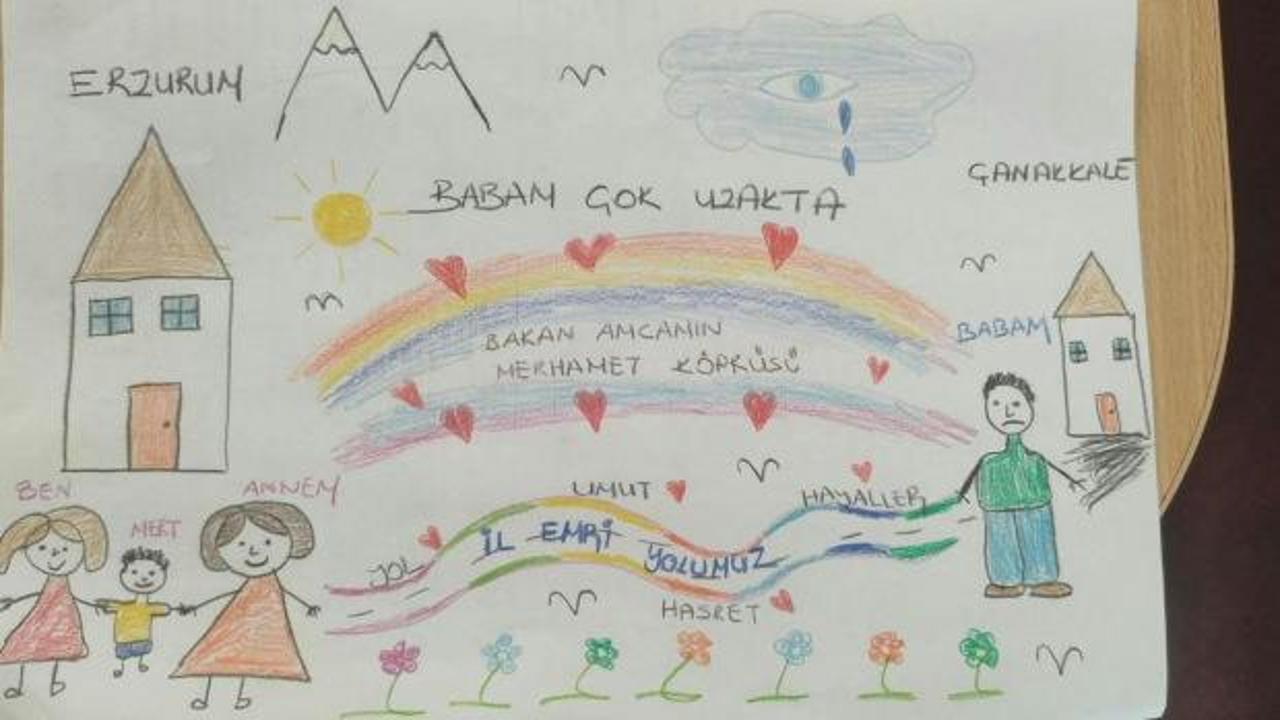 ERZURUM
ÇANAKKALE
BABAM ÇOK UZAKTA
BAKAN AMCAMIN
MERHAMET KÖPRÜSÜ
BABAM
BEN
MERT
ANNEM
UMUT
HAYALLER
YOL
İL EMRİ YOLUMUZ
HASRET